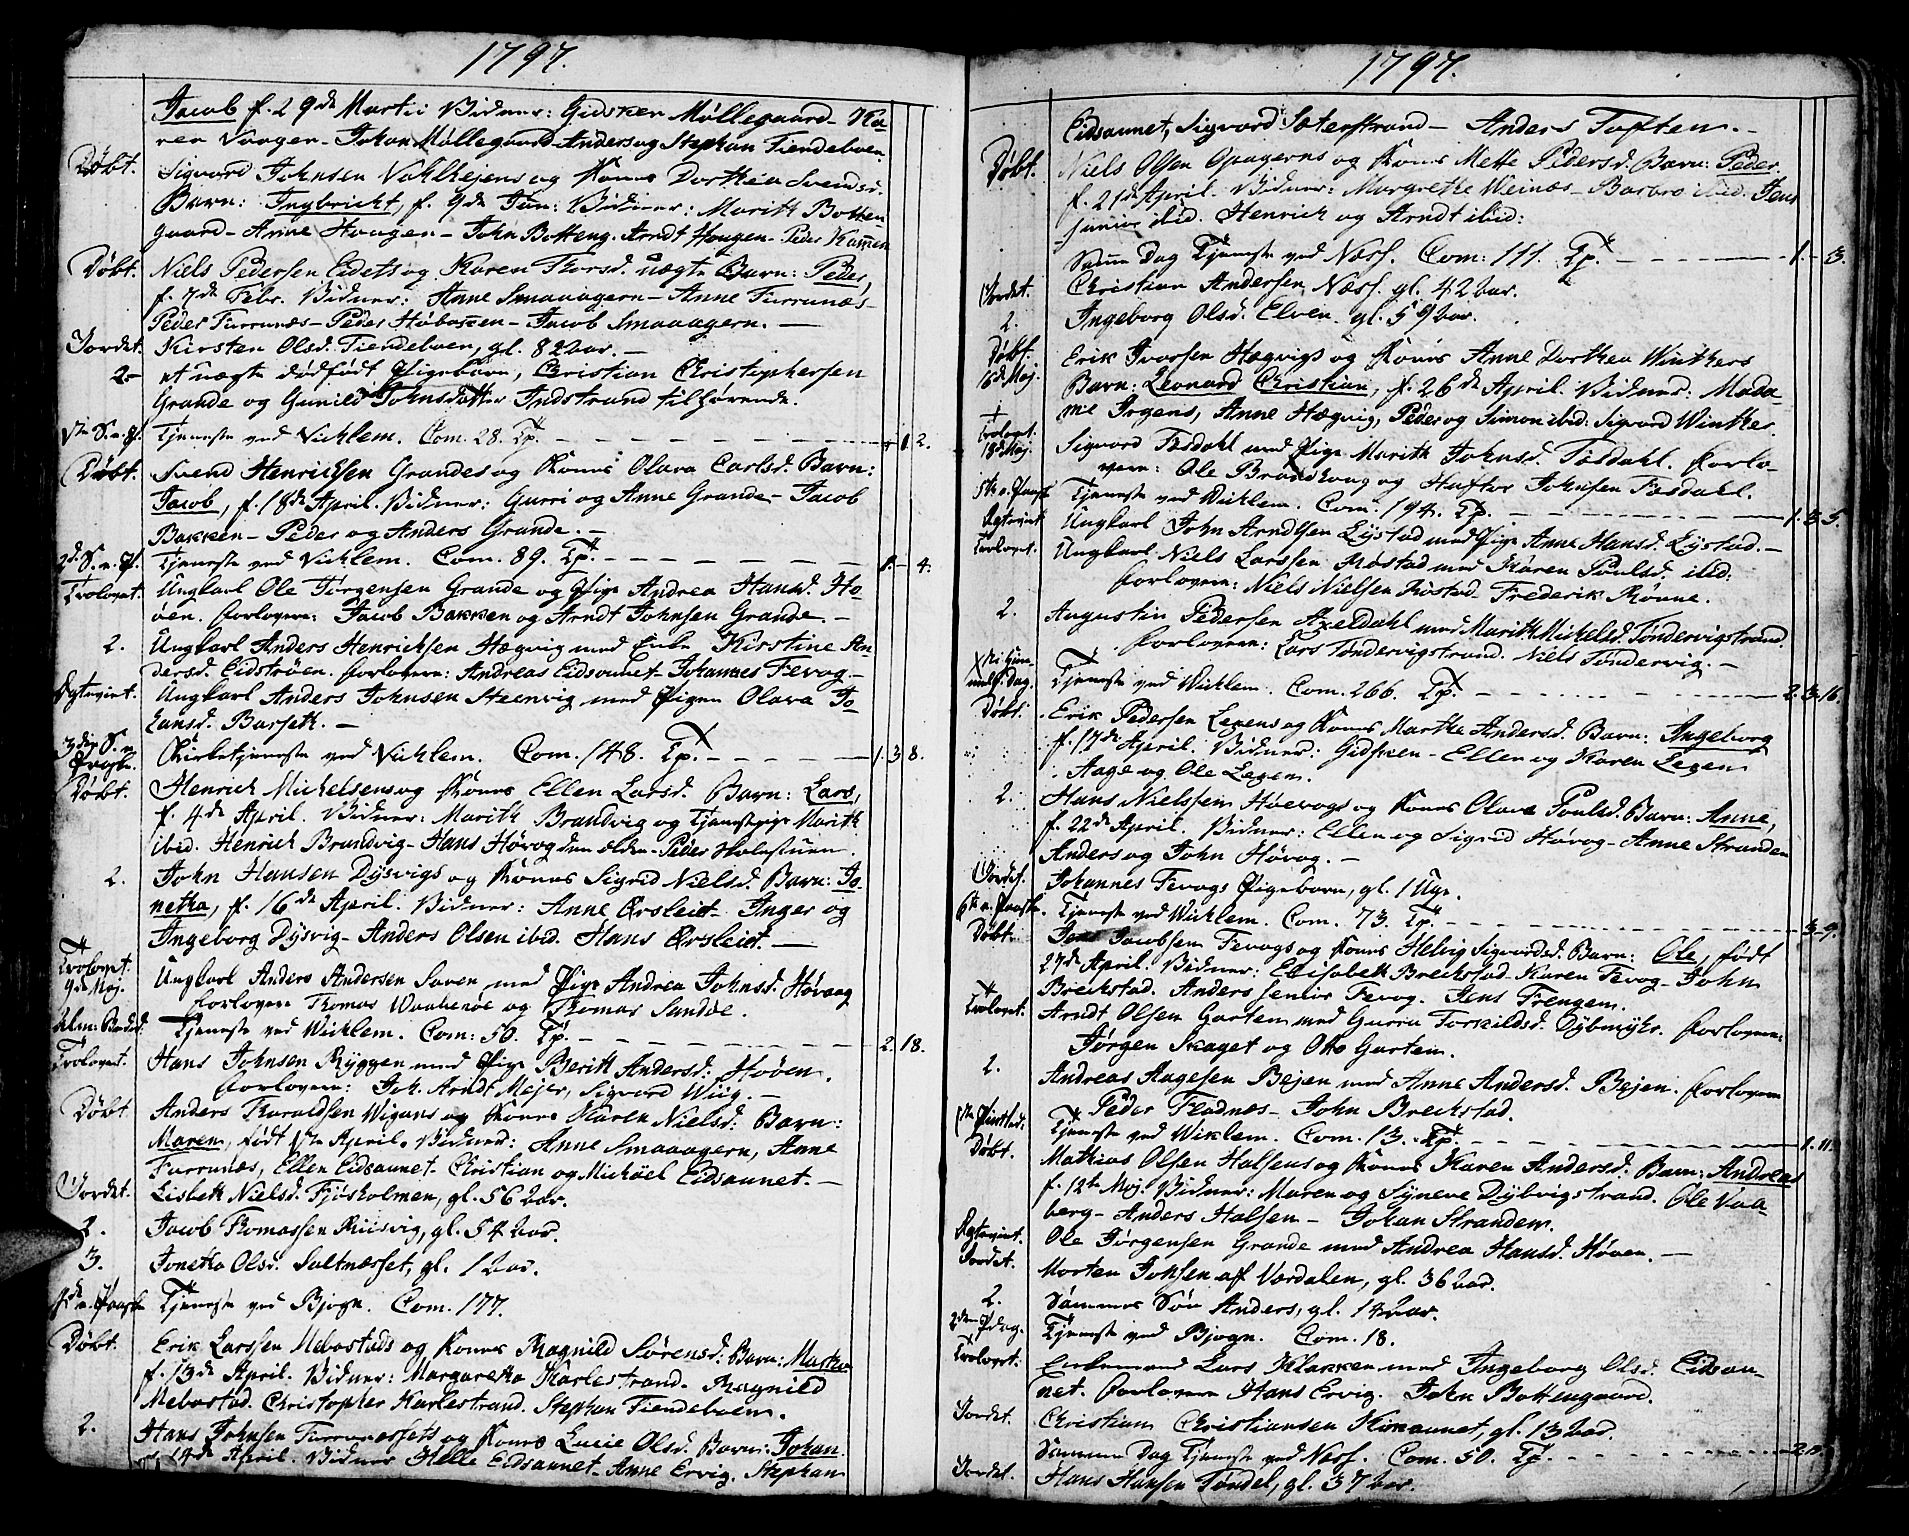 1797.
Jacob f. 29de Martii Vidner: Gidsken Møllegaard - Ka-
ren Vaagen - Johan Møllegaard - Anders og Stephan Tiendeboen.
Døbt. Sigvard Johnsen og Kones Dorthea Svends.
Barn: Ingbricht, f. 9de Jan: Vidner: Marith Botten
gaard - Anne Hougen - John Botteng. Arndt Hougen - Peder
Døbt. Niels Pedersen Eidets og Karen Thorsd. uægte Barn: Peder,
f. 7de Febr. Vidner: Anne Smaaagern - Anne Furrunæs -
Peder Furrunæs - Peder - Jacob Smaaagern. -
Jordet. Kirsten Olsd. Tiendeboen, gl. 82 aar. -
2 - et uægte dødfødt Pigebarn, Christian Christophersen
Grande og Gunild Johnsdatter Indstrand tilhørende.
1ste S. e. P. Tjeneste ved Vicklem. Com. 28. Tp. - 1. 2.
Døbt. Svend Henrichsen Grandes og Kones Olava Carlsd. Barn:
Jacob, f. 18de April. Vidner: Gurri og Anne Grande - Jacob
Bakken - Peder og Anders Grande. -
2d. S. e. P. Tjeneste ved Vicklem. Com. 89. Tp. - 1. - 4.
Trolovet. Ungkarl Ole Jørgensen Grande og Pige Andrea Hansd. Hø-
øen. Forlovere: Jacob Bakken og Arndt Johnsen Grande. -
2. Ungkarl Anders Henrichsen Hægvig med Enke Kirstine An-
dersd. Eidstrøen. Forlovere: Andreas Eidsaunet - Johannes Fevog. -
Egteviet. Ungkarl Anders Johnsen Steenvig med Pigen Olava Jo-
hansd. Barseth. -
3die S. e. Paaske. Kirketjeneste ved Vicklem. Com. 148. Tp. - 1. 3. 8.
Døbt. Henrich Michelsens og Kones Ellen Larsd. Barn: Lars,
f. 4de April. Vidner: Marith Brandvig og Tjenestepige Marith
ibid. Henrich Brandvig - Hans Høvog den ældre - Peder Holestuen.
2. John Hansen Dysvigs og Kones Sigrid Nielsd. Barn: Jo-
netha, f. 16de April. Vidner: Anne Ørsleit. Inger og
Ingeborg Dysvig - Anders Olsen ibid. Hans Ørsleit. -
Trolovet. 9de Maj. Ungkarl Anders Andersen Saven med Pige Andrea Johnsd. Høvaag
Forlovere Thomas og Thomas Sandøe.
Alm: Bededag Tjeneste ved Wicklem. Com: 50. Tp. - 2. 18.
Trolovet. Hans Johnsen Ryggen med Pige Berith Andersd: Høøen.
Forlovere: Joh. Arndt Mejer, Sigvard Wiig. -
Døbt Anders Haraldsen Wigans og Kones Karen Nielsd: Barn:
Maren, født 1ste April. Vidner: Anne Smaaagern, Anne
Furrunæs, Ellen Eidsaunet. Christian og Michael Eidsaunet. -
Jordet. Lisbeth Nielsd. Fjøsholmen, gl. 56 aar.
2. Jacob Thomassen Riisvig, gl. 54 aar.
3. Jonetha Olsd. Saltnæsset, gl. 1 aar.
4de e. Paaske Tjeneste ved Bjogn. Com. 177.
Døbt. Erik Larssen Mebostads og Kones Ragnild Sørensd: Barn: Martha
f. 13de April. Vidner: Margaretha Karlestrand. Ragnild
Mebostad. Christopher Karlestrand. Stephan Tiendeboen.
2. Hans Johnsen Furrunæssets og Kones Lucie Olsd. Barn: Johan
f. 14de April. Vidner Helle Eidsaunet. Anne Ervig. Stephan
1797.
Eidsaunet, Sigvard Sæterstrand - Anders Toften. -
Døbt. Niels Olsen Opagerns og Kones Mette Pedersd. Barn: Peder
f. 21de April. Vidner: Margrethe Weinæs - Barbro ibid. Jens
junior ibid. Henrich og Arndt ibid:
Samme Dag Tjeneste ved Næss. Com: 111. Tp. - 1. - 3.
Jordet. Christian Andersen Næss. gl. 42 aar.
2. Ingeborg Olsd. Elven. gl. 59 aar.
Døbt. 16de Maj. Erik Iversen Hægvigs og Kones Anne Dorthea Winthers
Barn: Leonard Christian, f. 26de April. Vidner: Mada-
me Irgens, Anne Hægvig, Peder og Simon ibid: Sigvard Winther.
Trolovet. 18de Maj. Sigvard Fosdahl med Pige Marith Johnsd. Fosdahl. Forlo-
vere: Ole Brandhoug og Huftor Johnsen Fosdahl.
5te e. Paaske Tjeneste ved Wicklem. Com. 194. Tp. - 1. 3. 5.
Egteviet Ungkarl John Arndtsen Lystad med Pige Anne Hansd. Lystad. -
Trolovet. Ungkarl Niels Larssen Røstad med Karen Poulsd. ibid:
Forlovere: Niels Nielsen Røstad. Frederik Rønne.
2. Augustin Pedersen Axeldahl med Marith Michelsd. Tøndervigstrand.
Forlovere: Lars Tøndervigstrand. Niels Tøndervig. -
Xsti Him-melf. Dag. Tjeneste ved Wicklem. Com. 266. Tp. - 2. 3. 16.
Døbt. Erik Pedersen Legens og Kones Marthe Andersd. Barn: Ingeborg
f. 17de April. Vidner: Gidsken - Ellen og Karen Legen
Aage og Ole Legen.
2. Hans Nielssen Høevogs og Kones Olave Poulsd. Barn: Anne,
f. 22de April. Vidner: Ellen og Sigrid Høvog - Anne Stranden
Anders og John Høvog. -
Jordet. Johannes Fevogs Pigebarn, gl. 1 Uge.
6te e. Paaske. Tjeneste ved Wicklem. Com. 73. Tp. - 3 - 9.
Døbt. Jens Jacobsen Fevogs og Kones Helvig Sigvardsd. Barn: Ole, født
27de April. Vidner: Elisabeth Breckstad. Karen Fevog - John
Breckstad. Anders senior Fevog. Jens Trengen.
Trolovet. Arndt Olsen Garten med Gurru Torkildsd. Dybmyhr. Forlovere:
Jørgen Skaget og Otto Garten.
2. Andreas Aagesen Bejen med Anne Andersd. Bejen. Forlovere
Peder Fladnæs - John Breckstad.
1ste Pintsed: Tjeneste ved Wiklem. Com. 13. Tp. - 1. 11.
Døbt. Mathias Olsen Halsens og Kones Karen Andersd: Barn: Andreas
f. 12te Maj. Vidner: Maren og Synneve Dybvigstrand. Ole Vaa-
berg - Anders Halsen - Johan Stranden.
Egteviet. Ole Jørgensen Grande med Andrea Hansd. Høøen. -
Jordet. Morten Johsen af Værdalen, gl. 36 aar.
2. Sammes Søn Anders, gl. 14 aar.
2den P. dag. Tjeneste ved Bjogn. Com. 18.
Trolovet. Enkemand Lars Klakken med Ingeborg Olsd. Eidsau-
net. Forlovere Hans Ervig. John Bottengaard.
Jordet. Christian Christiansen Kimaunet, gl. 13 aar.
Samme Dag Tjeneste ved Næss. Com. 50. Tp.
Jordet. Hans Hansen Tøndel, gl. 37 aar.